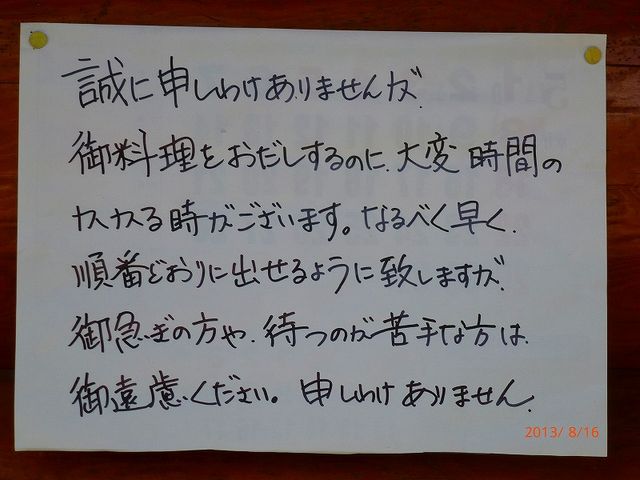 誠に申しわけありませんが、
御料理をおだしするのに、大変時間の
かかる時がございます。なるべく早く、
順番どおりに出せるように致しますが、
御急ぎの方や、待つのが苦手な方は、
御遠慮ください。申しわけありません。
2013/ 8/16